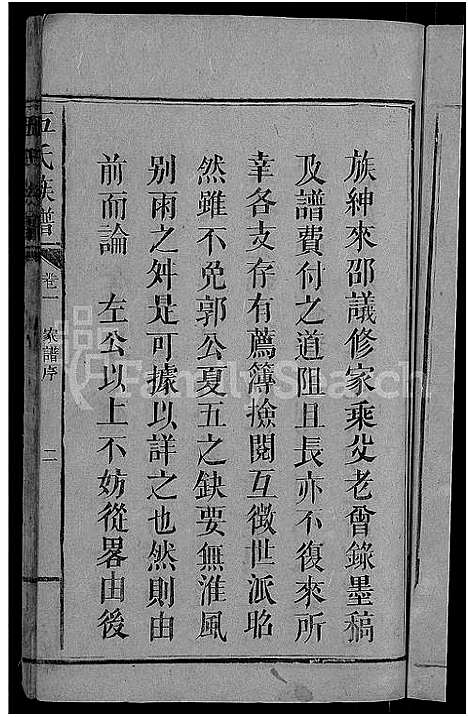 族紳來邵議修家乘父老曾錄墨稿
及譜費付之道阻且長亦不復來所
幸各支存有薦簿撿閱互徵世派昭
然雖不免郭公夏五之缺要無淮風
別雨之舛是可據以詳之也然則由
前而論　左公以上不妨從畧由後
伍氏族譜
卷一　家譜序　二
FamilySearch